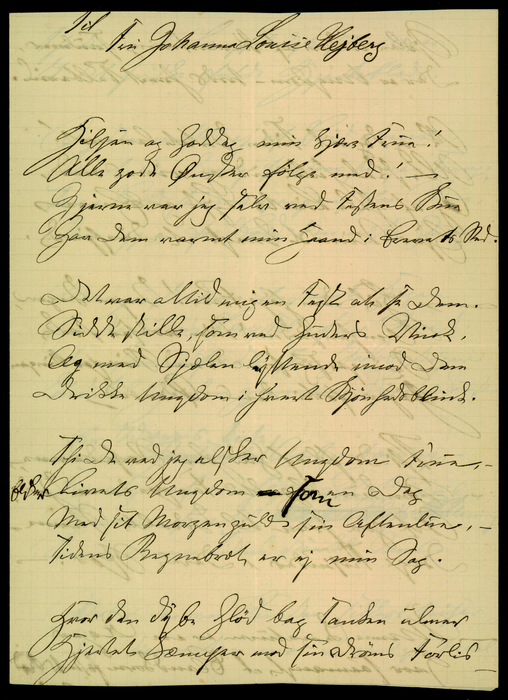 Til
Fru Johanna Louise Hejberg
Hilsen og Goddag min kjære Frue!
Alle gode Ønsker følge med! —
Gjerne var jeg selv ved Festens
Gav Dem varmt min Haand i Brevets Sted.
Det var altid mig en Fest at se Dem.
Sidde stille, som ved Guders Vink,
Og med Sjælen lyttende imod Dem
Drikke Ungdom i hvert Skjønhedsblink.
Thi De ved jeg elsker Ungdom Frue, —
Livets Ungdom — som en Dag
Med sit Morgenguld sin Aftenlue, —
Tidens Regnebræt er ej min Sag.
Hvor den dybe Glød bag Tanken ulmer
Hjertet kæmper mod sin Drøms Forlis —